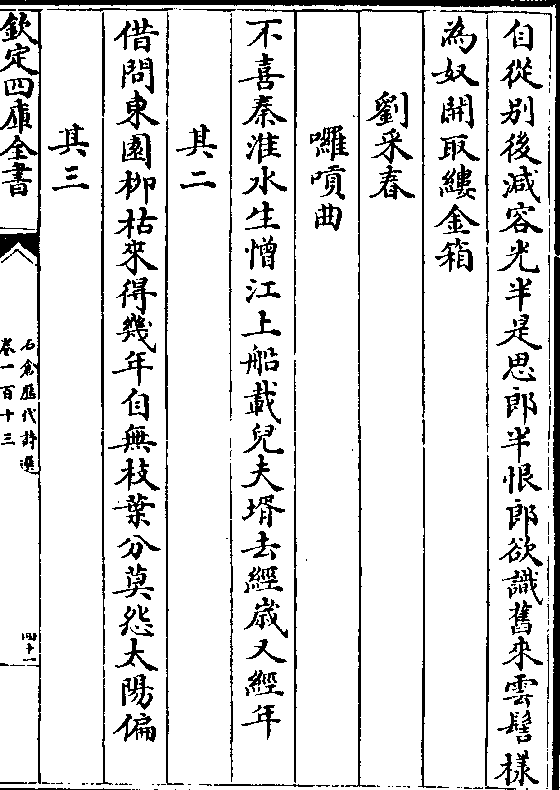 自從别後減容光半是思郎半恨郎欲識舊來雲髻様
為奴開取縷金箱
劉采春
囉嗊曲
不喜秦淮水生憎江上船載兒夫壻去經歳又經年
其二
借問東園柳枯來得幾年自無枝葉分莫怨太陽偏
其三
欽定四庫全書
石倉歴代詩選
卷一百十三
四十一